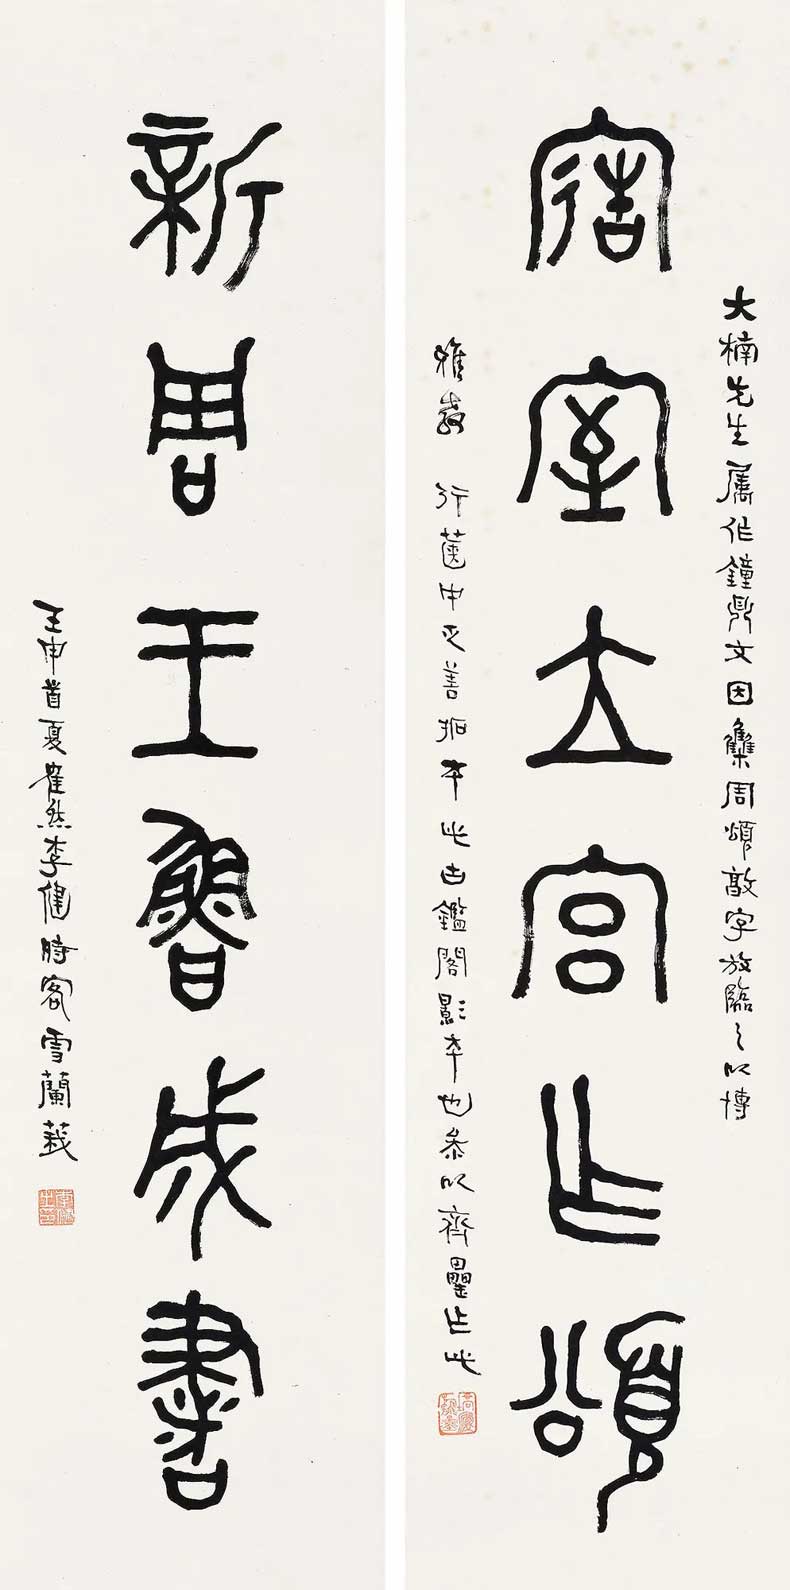 大楠先生属作鐘鼎文因集周頌敦字放臨之以博
造室立宮乍頌
雅教 行篋中乏善拓本此古鑑閣影本也参以齊罍作此
新周王魯成書
壬申首夏隺然李健時客雪蘭莪